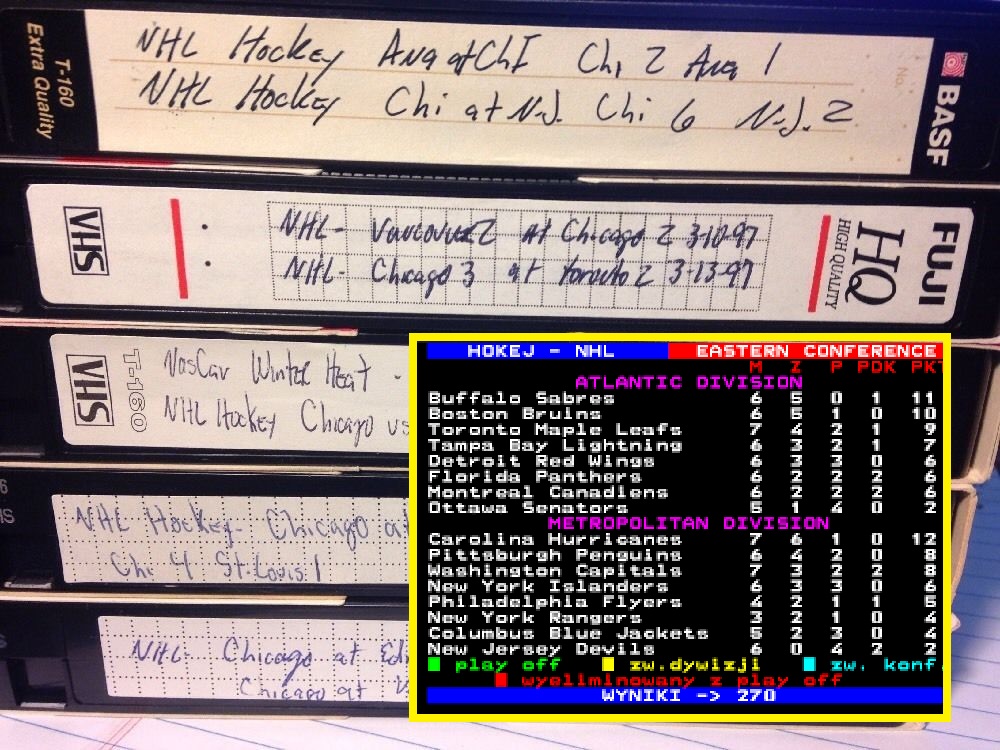 T-160
Extra Quality
NHL Hockey Ana at ChI Chi 2 Ana 1
NHL Hockey Chi at N.J. Chi 6 N.J. 2
No.
BASF
VHS
NHL- Vancouver 2 at Chicago 2 3-10-97
NHL- Chicago 3 at Toronto 2 3-13-97
HIGH QUALITY
HQ
FUJI
VHS
T-160
NasCar Winter Heat -
NHL Hockey Chicago vs
NHL Hockey- Chicago at
Chi 4 St. Louis 1
NHL- Chicago at Ed
Chicago at
HOKEJ - NHL EASTERN CONFERENCE
M Z P PDK PKT
ATLANTIC DIVISION
Buffalo Sabres 6 5 0 1 11
Boston Bruins 6 5 1 0 10
Toronto Maple Leafs 7 4 2 1 9
Tampa Bay Lightning 6 3 2 1 7
Detroit Red Wings 6 3 3 0 6
Florida Panthers 6 2 2 2 6
Montreal Canadiens 6 2 2 2 6
Ottawa Senators 5 1 4 0 2
METROPOLITAN DIVISION
Carolina Hurricanes 7 6 1 0 12
Pittsburgh Penguins 6 4 2 0 8
Washington Capitals 7 3 2 2 8
New York Islanders 6 3 3 0 6
Philadelphia Flyers 4 2 1 1 5
New York Rangers 3 2 1 0 4
Columbus Blue Jackets 5 2 3 0 4
New Jersey Devils 6 0 4 2 2
play off zw.dywizji zw. konf.
wyeliminowany z play off
WYNIKI -> 270